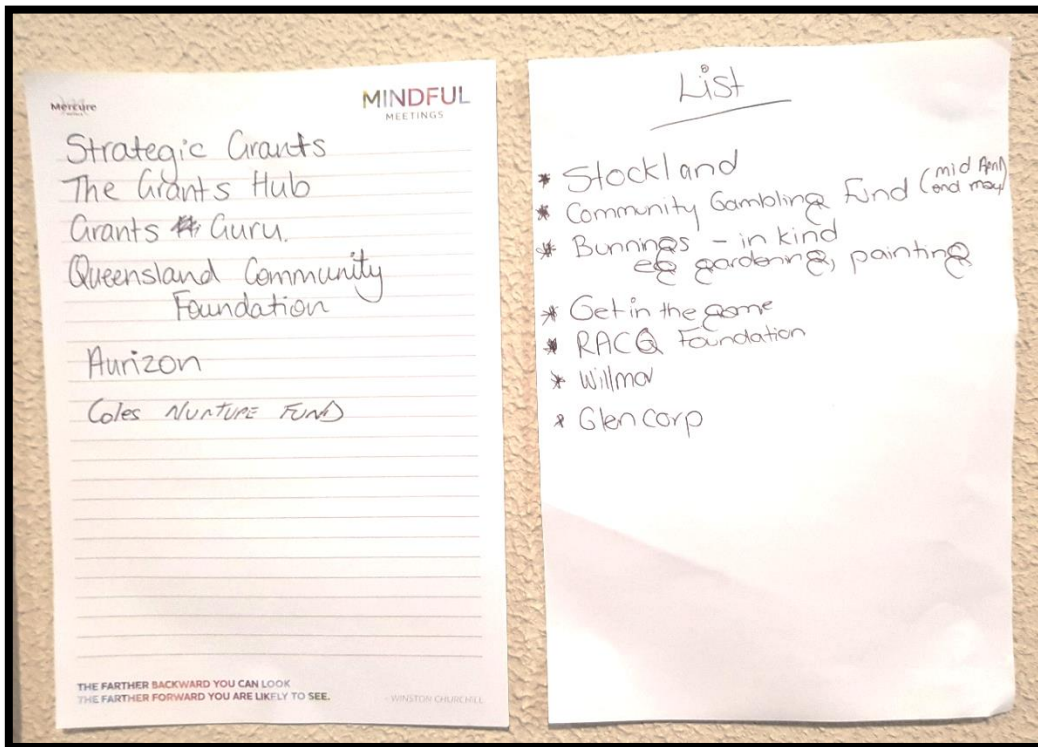 Mercure
MINDFUL
MEETINGS
Strategic Grants
The Grants Hub
Grants Guru.
Queensland Community
Foundation
Aurizon
Coles NURTURE FUND
THE FARTHER BACKWARD YOU CAN LOOK
THE FARTHER FORWARD YOU ARE LIKELY TO SEE.
- WINSTON CHURCHILL
List
* Stockland
* Community Gambling Fund (mid April
end may)
* Bunnings - in kind
eg gardening, painting
* Get in the game
* RACQ Foundation
* Willmar
* Glencorp